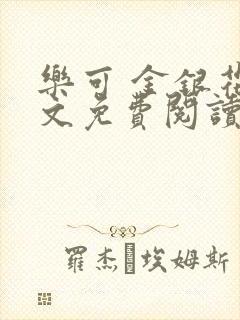 樂可 金銀花
文免費閱讀
羅杰•埃姆斯